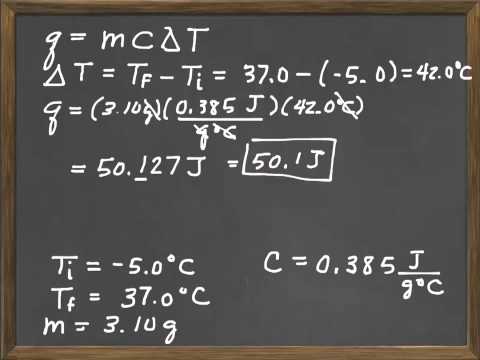 q = m C Δ T
Δ T = T_f − T_i = 37.0 − (−5.0) = 42.0°C
q = (3.10g)(0.385 J / g°C)(42.0°C)
= 50.127 J = 50.1 J
T_i = −5.0°C
T_f = 37.0°C
m = 3.10 g
C = 0.385 J / g°C